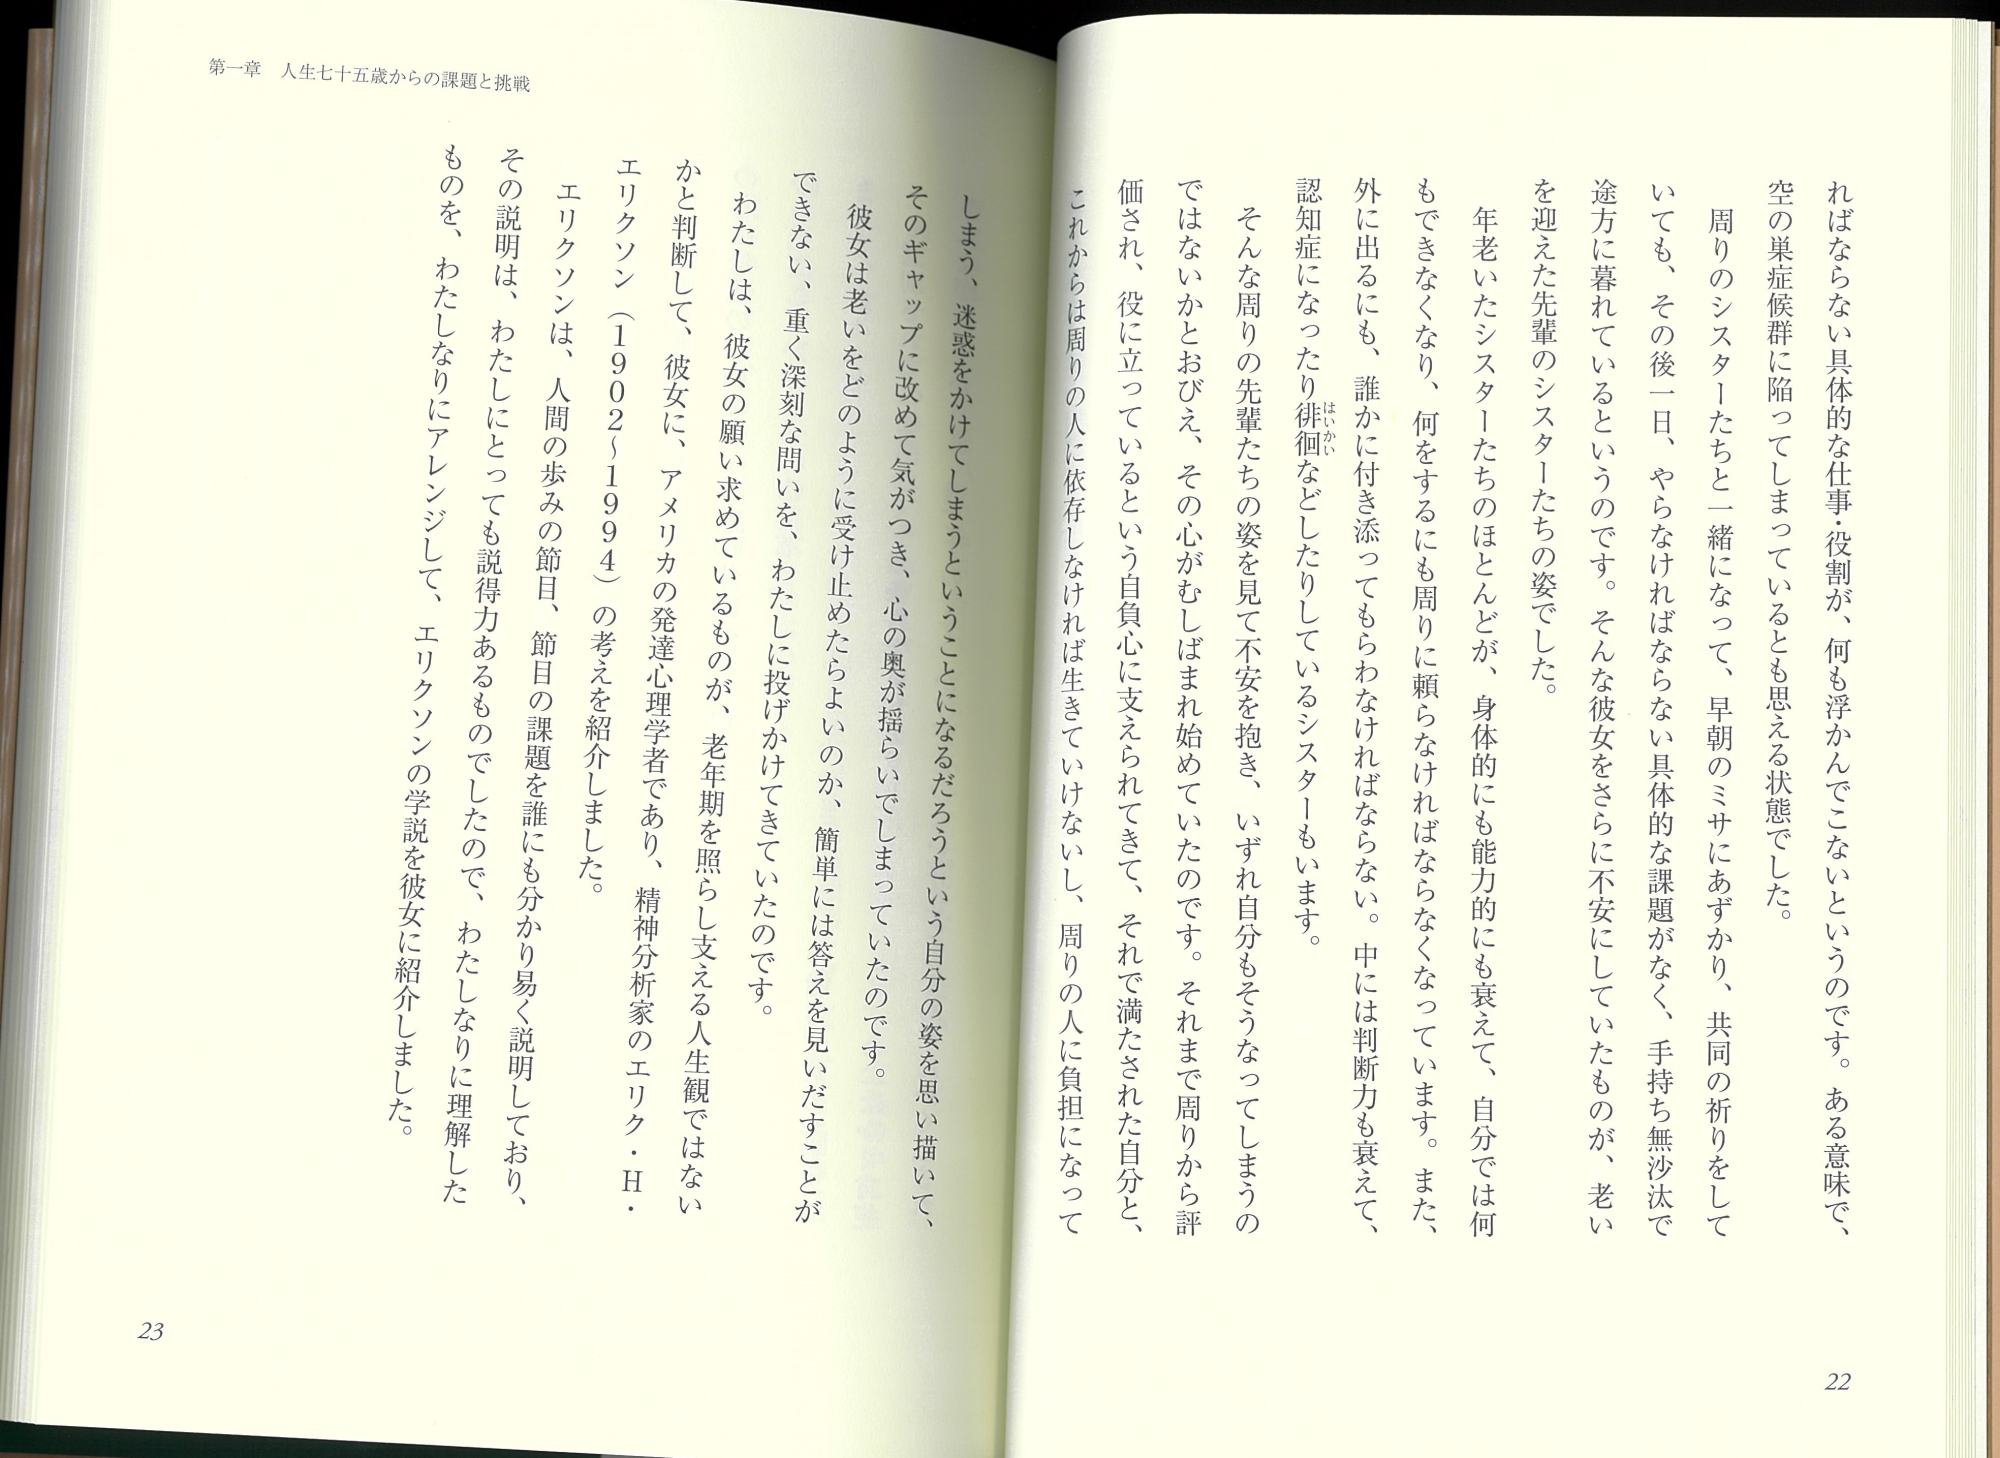 ればならない具体的な仕事・役割が、何も浮かんでこないというのです。ある意味で、
空の巣症候群に陥ってしまっているとも思える状態でした。
周りのシスターたちと一緒になって、早朝のミサにあずかり、共同の祈りをして
いても、その後一日、やらなければならない具体的な課題がなく、手持ち無沙汰で
途方に暮れているというのです。そんな彼女をさらに不安にしていたものが、老い
を迎えた先輩のシスターたちの姿でした。
年老いたシスターたちのほとんどが、身体的にも能力的にも衰えて、自分では何
もできなくなり、何をするにも周りに頼らなければならなくなっています。また、
外に出るにも、誰かに付き添ってもらわなければならない。中には判断力も衰えて、
認知症になったり徘徊はいかいなどしたりしているシスターもいます。
そんな周りの先輩たちの姿を見て不安を抱き、いずれ自分もそうなってしまうの
ではないかとおびえ、その心がむしばまれ始めていたのです。それまで周りから評
価され、役に立っているという自負心に支えられてきて、それで満たされた自分と、
これからは周りの人に依存しなければ生きていけないし、周りの人に負担になって
22
第一章　人生七十五歳からの課題と挑戦
しまう、迷惑をかけてしまうということになるだろうという自分の姿を思い描いて、
そのギャップに改めて気がつき、心の奥が揺らいでしまっていたのです。
彼女は老いをどのように受け止めたらよいのか、簡単には答えを見いだすことが
できない、重く深刻な問いを、わたしに投げかけてきていたのです。
わたしは、彼女の願い求めているものが、老年期を照らし支える人生観ではない
かと判断して、彼女に、アメリカの発達心理学者であり、精神分析家のエリク・H・
エリクソン（1902〜1994）の考えを紹介しました。
エリクソンは、人間の歩みの節目、節目の課題を誰にも分かり易く説明しており、
その説明は、わたしにとっても説得力あるものでしたので、わたしなりに理解した
ものを、わたしなりにアレンジして、エリクソンの学説を彼女に紹介しました。
23